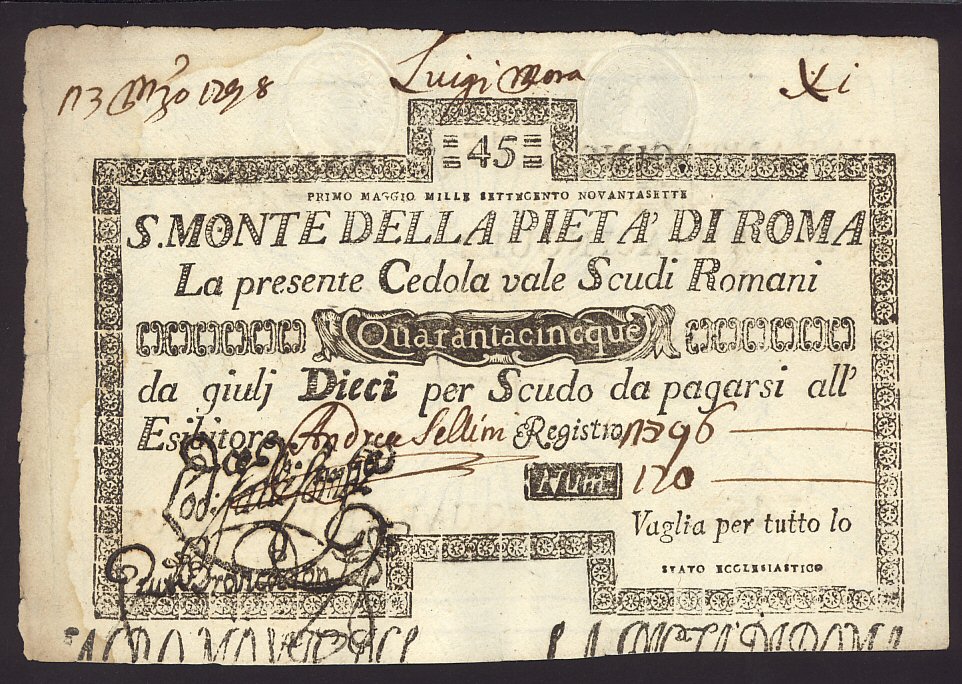 Luigi Mora
Xi
45
PRIMO MAGGIO MILLE SETTECENTO NOVANTASETTE
S. MONTE DELLA PIETA' DI ROMA
La presente Cedola vale Scudi Romani
Quarantacincque
da giulj Dieci per Scudo da pagarsi all'
Esibitore Andrea Sellini Registro
Num. 120
Vaglia per tutto lo
STATO ECCLESIASTICO